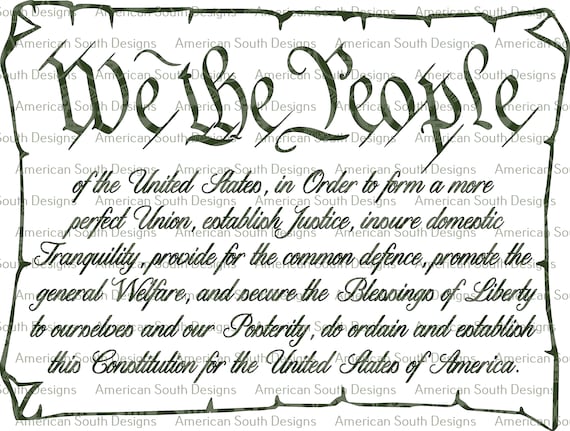 We the People
of the United States, in Order to form a more
perfect Union, establish Justice, insure domestic
Tranquility, provide for the common defence, promote the
general Welfare, and secure the Blessings of Liberty
to ourselves and our Posterity, do ordain and establish
this Constitution for the United States of America.
American South Designs